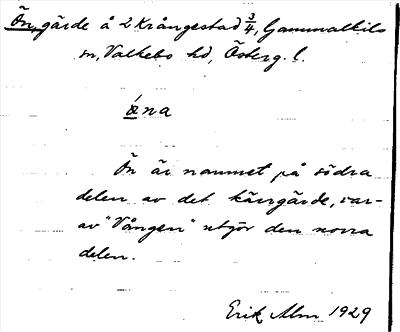 Ön, gärde å 2 Krångestad 3/4, Gammalkils
sn, Valkebo hd, Österg. l.
ǿna
Ön är namnet på södra
delen av det kärrgärde, var-
av "Vången" utgör den norra
delen.
Erik Alm 1929